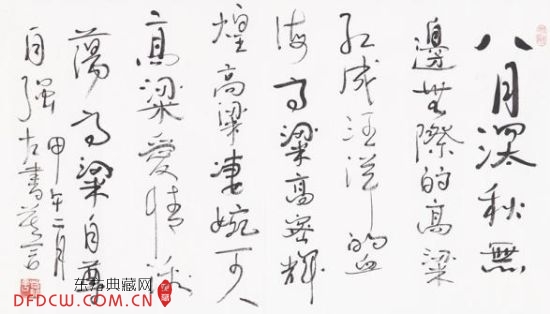 八月深秋無
邊無際的高粱
紅成汪洋的血
海高粱高密輝
煌高粱凄婉可人
高粱愛情激
蕩高粱自尊
自强左書莫言
甲午二月
东方典藏网
DFDCW.COM.CN